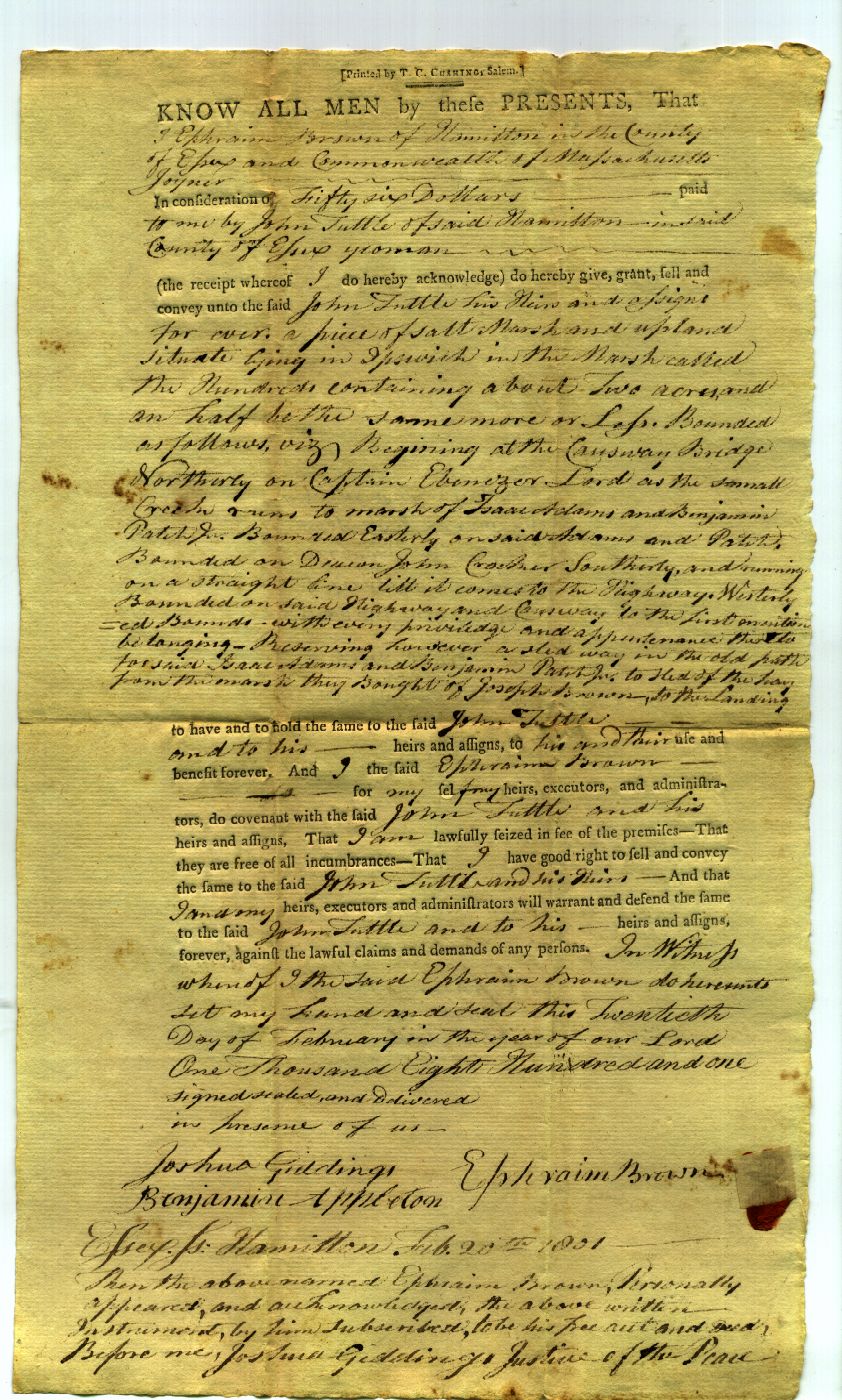 [Printed by T. C. CUSHING, Salem.]
KNOW ALL MEN by theſe PRESENTS, That
I Ephraim Brown of Hamilton in the County
of Eſsex and Commonwealth of Massachusetts
Joyner
In conſideration of Fifty six Dollars paid
to me by John Tuttle of said Hamilton in said
County of Eſsex yeoman
(the receipt whereof I do hereby acknowledge) do hereby give, grant, ſell and
convey unto the ſaid John Tuttle his Heirs and aſsigns
for ever. a piece of salt Marsh and upland
situate lying in Ipswich in the Marsh called
the Hundreds containing about Two acres and
an half be the same more or Leſs. Bounded
as follows, viz, Begining at the Causway Bridge
Northerly on Captain Ebenezer Lord as the small
Creek runs to marsh of Isaac Adams and Benjamin
Patch Jr. Bounded Easterly on said Adams and Patch,
Bounded on Deacon John Crocker Southerly, and running
on a straight line till it comes to the Highway. Westerly
Bounded on said Highway and Causway to the first mention
=ed Bounds - with every priviledge and appurtenance thereto
belonging - Reserving however a sled way in the old path
for said Isaac Adams and Benjamin Patch Jr. to sled of the hay
from the marsh they Bought of Joseph Brown, to the Landing
to have and to hold the ſame to the ſaid John Tuttle
and to his — heirs and aſſigns, to his and their uſe and
benefit forever. And I the ſaid Ephraim Brown —
for my ſelf my heirs, executors, and adminiſtra-
tors, do covenant with the ſaid John Tuttle and his
heirs and aſſigns, That I am lawfully ſeized in fee of the premiſes—That
they are free of all incumbrances—That I have good right to ſell and convey
the ſame to the ſaid John Tuttle and his Heirs — And that
I and my heirs, executors and adminiſtrators will warrant and defend the ſame
to the ſaid John Tuttle and to his — heirs and aſſigns,
forever, againſt the lawful claims and demands of any perſons. In Witneſs
whereof I the said Ephraim Brown do hereunto
set my hand and seal this Twentieth
Day of February in the year of our Lord
One Thousand Eight Hundred and one
signed sealed, and Delivered
in presence of us —
Joshua Giddings Ephraim Brown
Benjamin Appleton
Eſsex. Ss. Hamilton Feb. 20th 1801
Then the above named Ephraim Brown, Personally
appeared, and acknowledged, the above written
Instrument, by him subscribed, to be his free act and deed,
Before me, Joshua Giddings Justice of the Peace